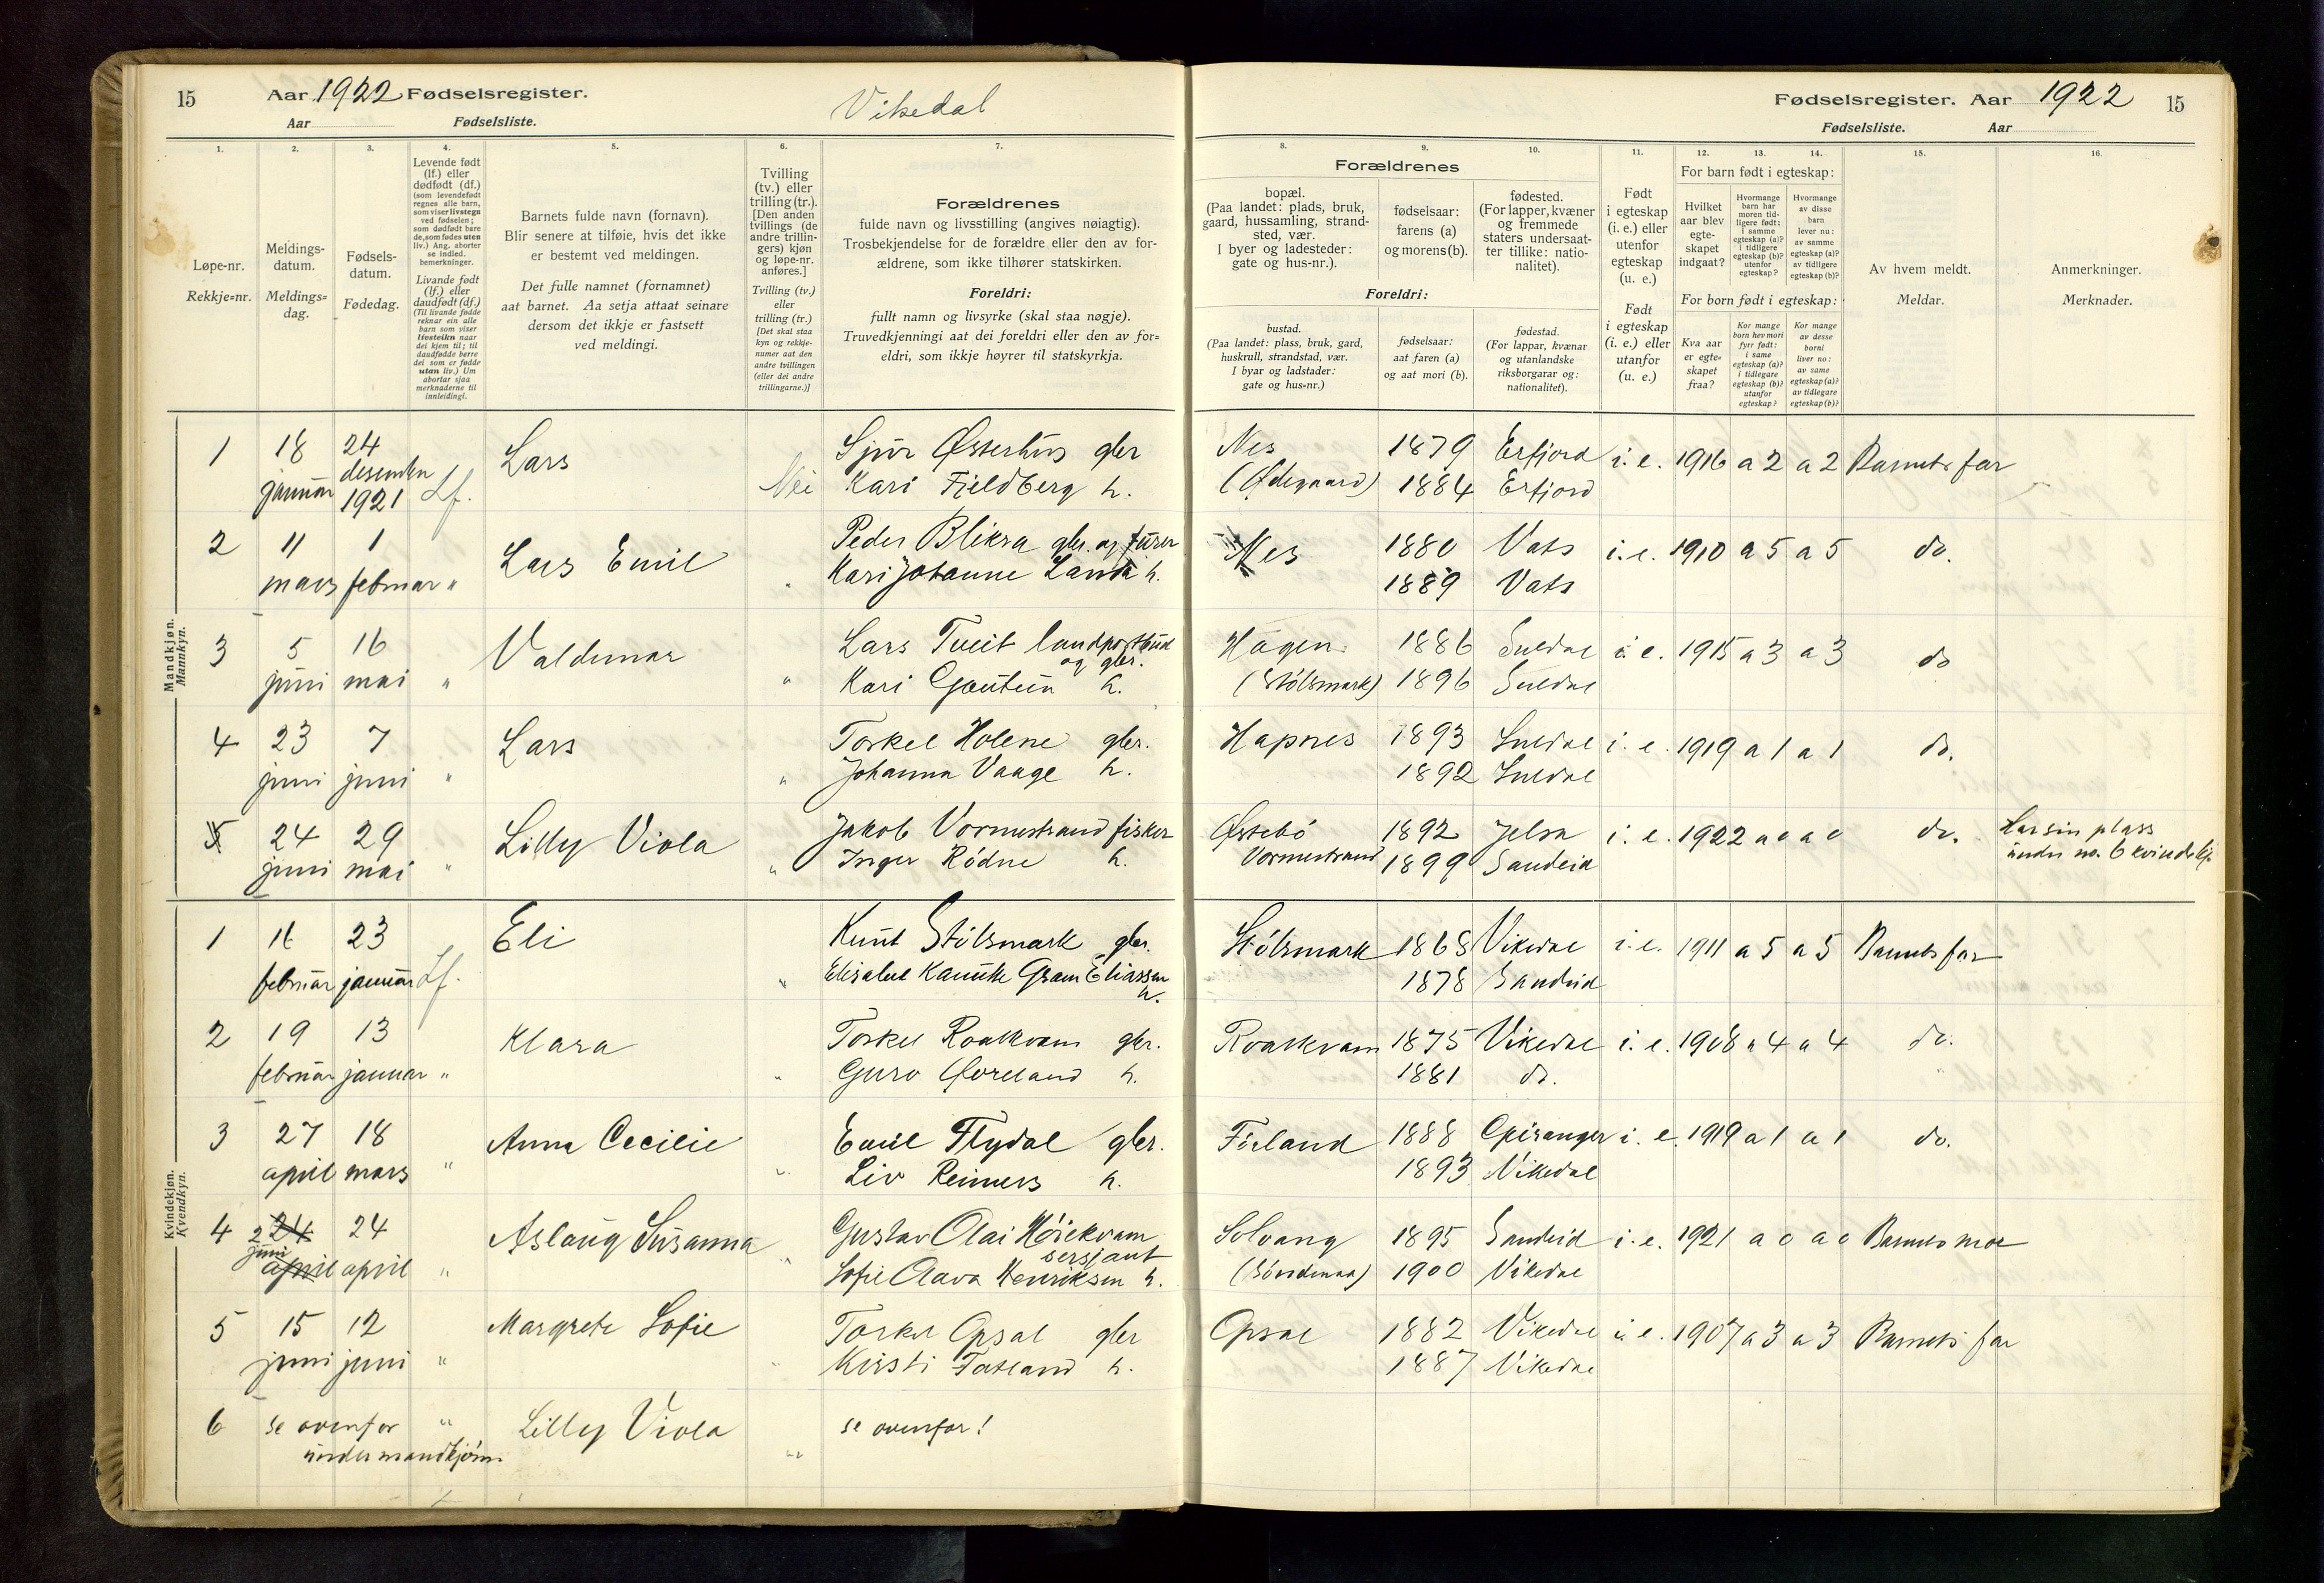 15 Aar 1922 Fødselsregister. Vikedal
Aar Fødselsliste.
Fødselsregister. Aar 1922 15
Fødselsliste. Aar
1. 2. 3. 4. 5. 6. 7.
Løpe-nr.
Rekkje-nr.
Meldings-
datum.
Meldings-
dag.
Fødsels-
datum.
Fødedag.
Levende født
(lf.) eller
dødfødt (df.)
(som levendefødt
regnes alle barn,
som viser livstegn
ved fødselen;
som dødfødt bare
de, som fødes uten
liv.) Ang. aborter
se indled.
bemerkninger.
Livande født
(lf.) eller
daudfødt (df.)
(Til livande fødde
reknar ein alle
barn som viser
livsteikn naar
dei kjem til; til
daudfødde berre
dei som er fødde
utan liv.) Um
abortar sjaa
merknaderne til
innleidingi.
Barnets fulde navn (fornavn).
Blir senere at tilføie, hvis det ikke
er bestemt ved meldingen.
Det fulle namnet (fornamnet)
aat barnet. Aa setja attaat seinare
dersom det ikkje er fastsett
ved meldingi.
Tvilling
(tv.) eller
trilling (tr.).
[Den anden
tvillings (de
andre trillin-
gers) kjøn
og løpe-nr.
anføres.]
Tvilling (tv.)
eller
trilling (tr.)
[Det skal staa
kyn og rekkje-
numer aat den
andre tvillingen
(eller dei andre
trillingarne.)]
Forældrenes
fulde navn og livsstilling (angives nøiagtig).
Trosbekjendelse for de forældre eller den av for-
ældrene, som ikke tilhører statskirken.
Foreldri:
fullt namn og livsyrke (skal staa nøgje).
Truvedkjenningi aat dei foreldri eller den av for-
eldri, som ikkje høyrer til statskyrkja.
8. 9. 10. 11. 12. 13. 14. 15. 16.
Forældrenes
bopæl.
(Paa landet: plads, bruk,
gaard, hussamling, strand-
sted, vær.
I byer og ladesteder:
gate og hus-nr.).
fødselsaar:
farens (a)
og morens (b).
fødested.
(For lapper, kvæner
og fremmede
staters undersaat-
ter tillike: natio-
nalitet).
Foreldri:
bustad.
(Paa landet: plass, bruk, gard,
huskrull, strandstad, vær.
I byar og ladstader:
gate og hus-nr.)
fødselsaar:
aat faren (a)
og aat mori (b).
fødestad.
(For lappar, kvænar
og utanlandske
riksborgarar og:
nationalitet).
Født
i egteskap
(i. e.) eller
utenfor
egteskap
(u. e.)
Født
i egteskap
(i. e.) eller
utanfor
(u. e.)
For barn født i egteskap:
Hvilket
aar blev
egte-
skapet
indgaat?
Hvormange
barn har
moren tid-
ligere født:
i samme
egteskap (a)?
i tidligere
egteskap (b)?
utenfor
egteskap?
Hvormange
av disse
barn
lever nu:
av samme
egteskap (a)?
av tidligere
egteskap (b)?
For born født i egteskap:
Kva aar
er egte-
skapet
fraa?
Kor mange
born hev mori
fyrr født:
i same
egteskap (a)?
i tidlegare
egteskap (b)?
utanfor
egteskap?
Kor mange
av desse
borni
liver no:
av same
egteskap (a)?
av tidlegare
egteskap (b)?
Av hvem meldt.
Meldar.
Anmerkninger.
Merknader.
Mandkjøn.
Mannkyn.
1 18 januar 24 desember 1921 Lf. Lars Nei Sjur Østerhus gbr Nes 1879 Erfjord i. e. 1916 a 2 a 2 Barnets far
Kari Fjeldberg h. (Ødegaard) 1884 Erfjord
2 11 mars 1 februar " Lars Emil " Peder Blikra gbr. og fører Nes 1880 Vats i. e. 1910 a 5 a 5 do.
Kari Johanne Landa h. 1889 Vats
3 5 juni 16 mai " Valdemar " Lars Tveit landpostbud og gbr. Hagen 1886 Suldal i. e. 1915 a 3 a 3 do
Kari Gautun h. (Stølsmark) 1896 Suldal
4 23 juni 7 juni " Lars " Torkel Holene gbr. Hapnes 1893 Suldal i. e. 1919 a 1 a 1 do.
Johanna Vaage h. 1892 Suldal
5 24 juni 29 mai " Lilly Viola " Jakob Vormestrand fisker Østebö 1892 Jelsa i. e. 1922 a o a o do. Har sin plass
Inger Rödne h. Vormestrand 1899 Sandeid under no. 6 kvindekjø.
Kvindekjøn.
Kvendkyn.
1 16 februar 23 januar Lf. Eli " Knut Stölsmark gbr. Stölsmark 1868 Vikedal i. e. 1911 a 5 a 5 Barnets far
Elisabet Kamitte Gram Eliassen h. 1878 Sandeid
2 19 februar 13 januar " Klara " Torkel Roalkvam gbr. Roalkvam 1875 Vikedal i. e. 1908 a 4 a 4 do.
Guro Øveland h. 1881 do.
3 27 april 18 mars " Anna Cecilie " Emil Flydal gbr. Førland 1888 Opiranger i. e. 1919 a 1 a 1 do.
Liv Reimers h. 1893 Vikedal
4 24 april 2 juni 24 april " Aslaug Susanna " Gustav Olai Höiekvam sersjant Solvang 1895 Sandeid i. e. 1921 a o a o Barnets mor
Sofie Olava Henriksen h. (Söndenaa) 1900 Vikedal
5 15 juni 12 juni " Margrete Sofie " Torkel Opsal gbr Opsal 1882 Vikedal i. e. 1907 a 3 a 3 Barnets far
Kirsti Fatland h. 1887 Vikedal
6 se ovenfor " Lilly Viola " se ovenfor!
under mandkjøn.